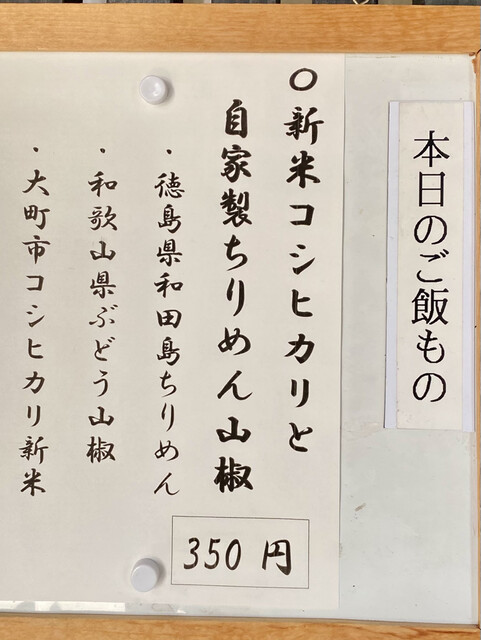 本日のご飯もの
○新米コシヒカリと
自家製ちりめん山椒
・徳島県和田島ちりめん
・和歌山県ぶどう山椒
・大町市コシヒカリ新米
350円